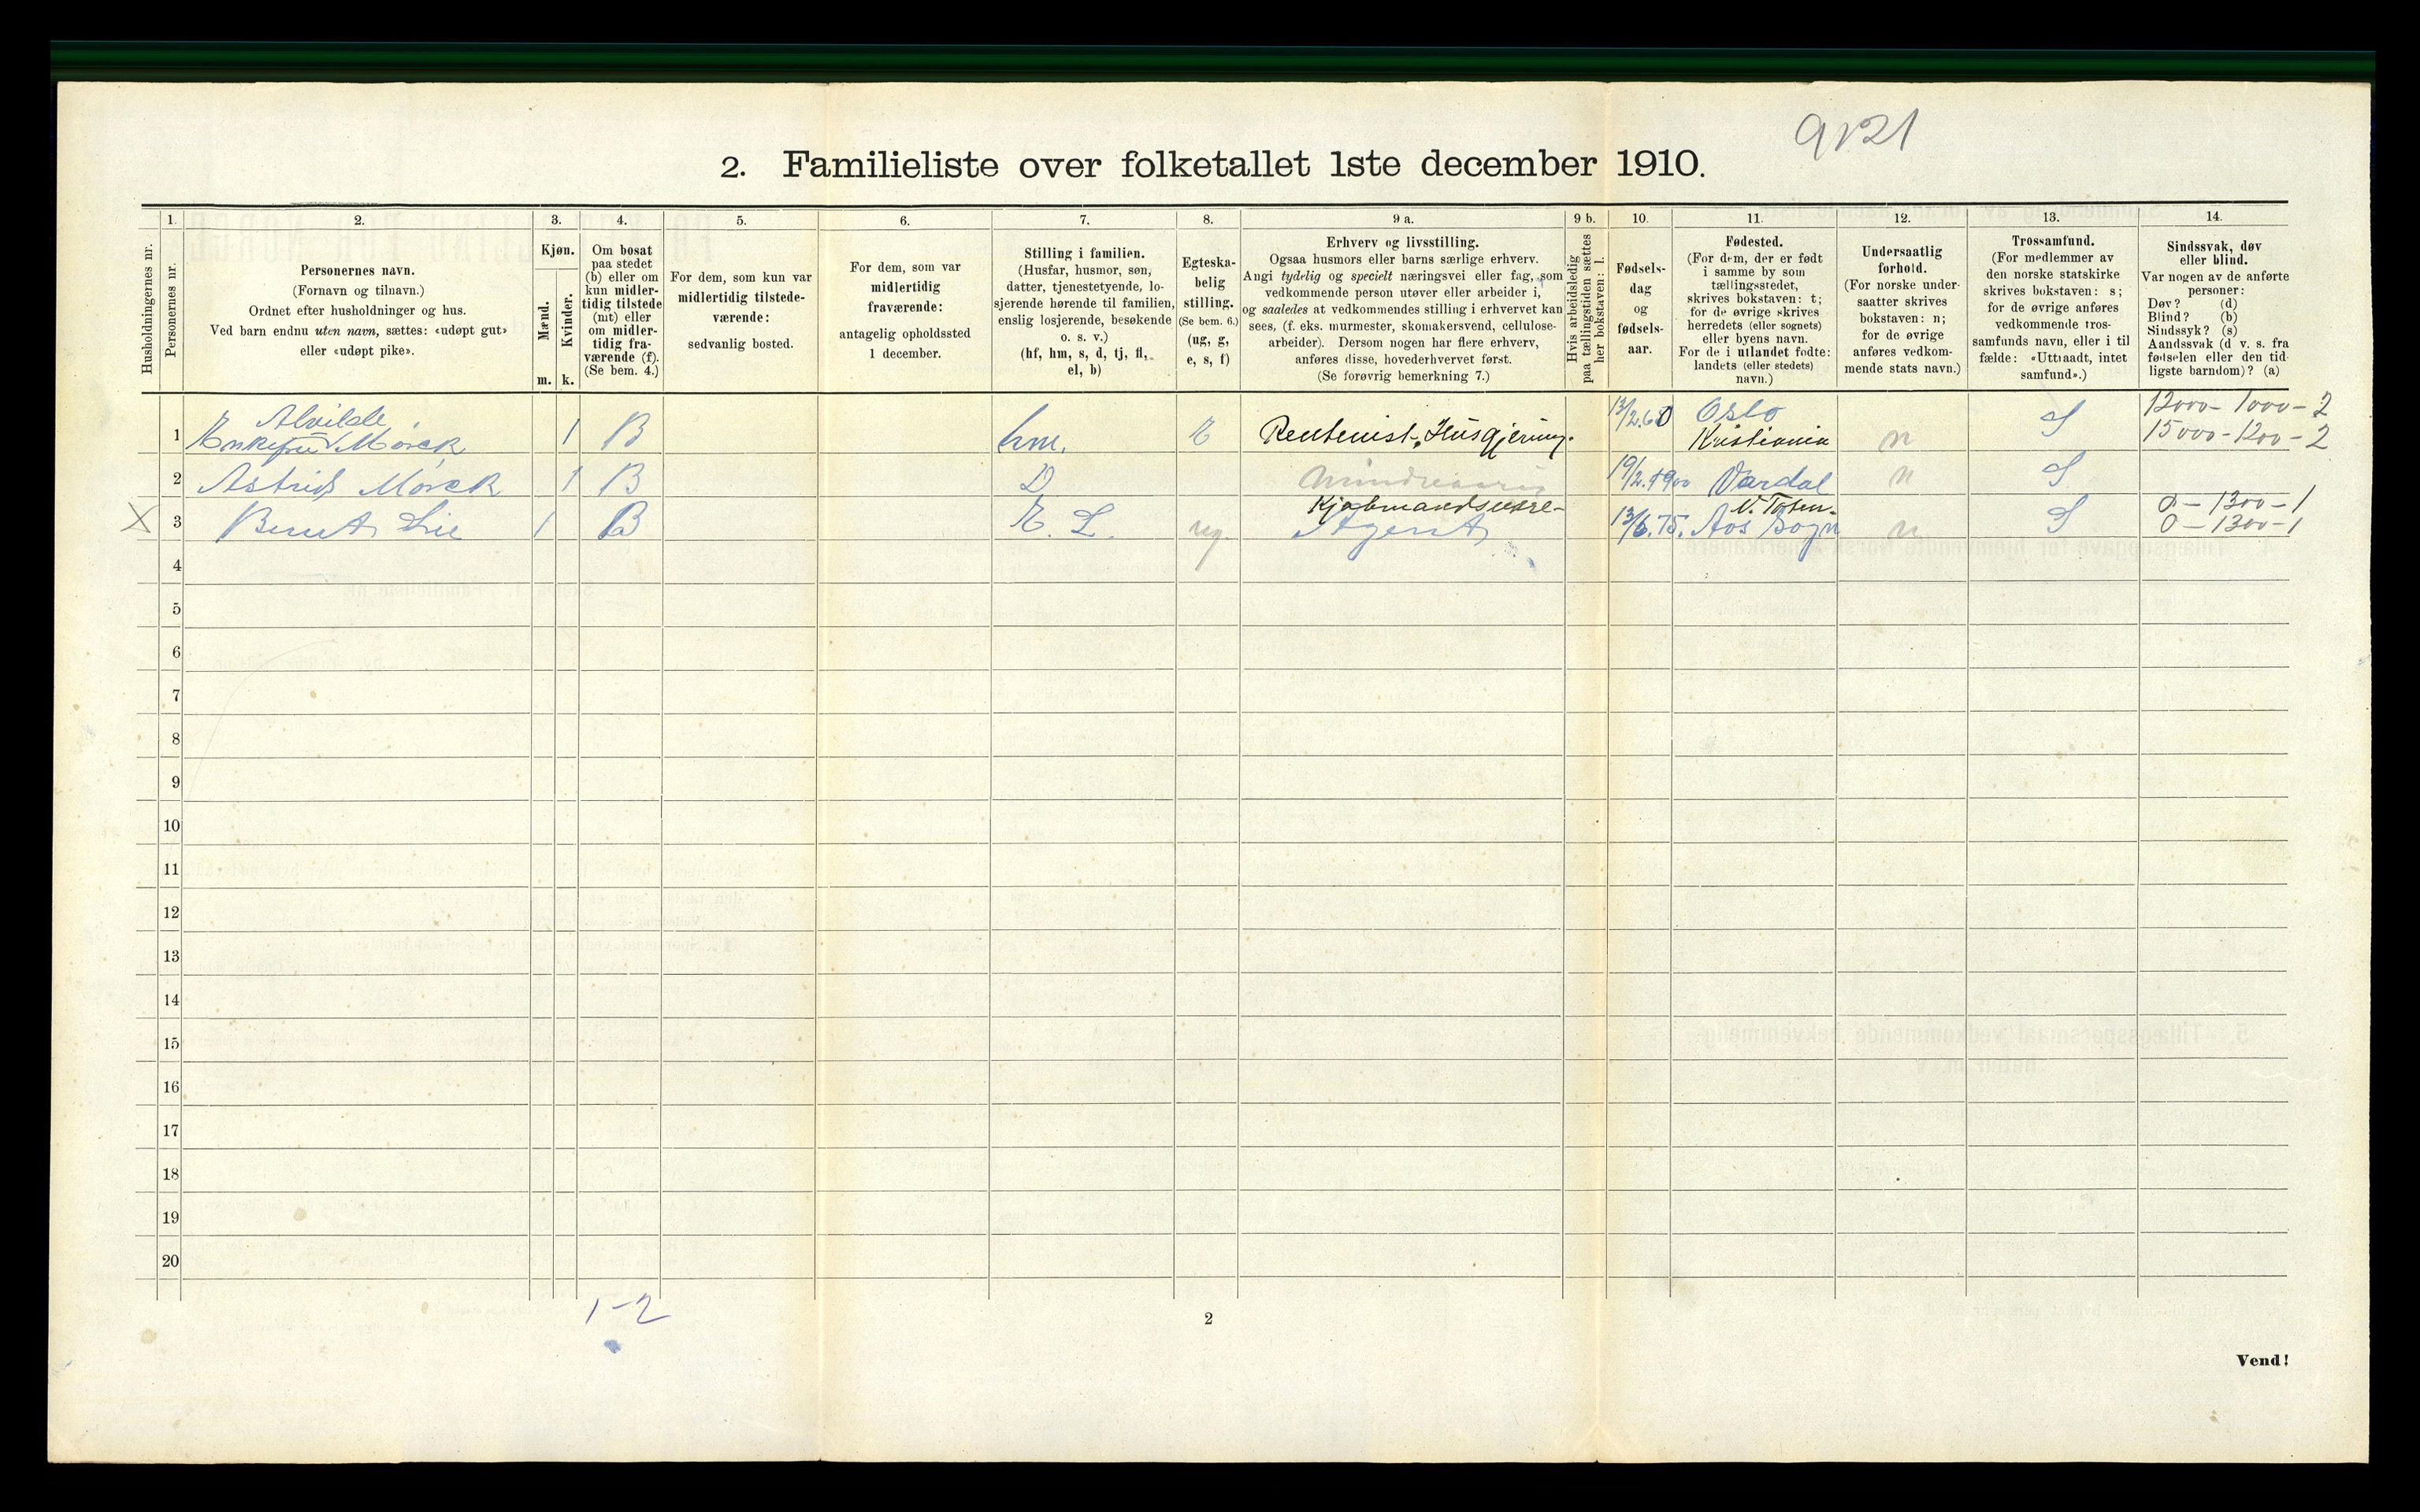 9121
2. Familieliste over folketallet 1ste december 1910.
Husholdningernes nr.
1.
Personernes nr.
2.
Personernes navn.
(Fornavn og tilnavn.)
Ordnet efter husholdninger og hus.
Ved barn endnu uten navn, sættes: «udøpt gut»
eller «udøpt pike».
3.
Kjøn.
Mænd.
Kvinder.
m. k.
4.
Om bosat
paa stedet
(b) eller om
kun midler-
tidig tilstede
(mt) eller
om midler-
tidig fra-
værende (f).
(Se bem. 4.)
5.
For dem, som kun var
midlertidig tilstede-
værende:
sedvanlig bosted.
6.
For dem, som var
midlertidig
fraværende:
antagelig opholdssted
1 december.
7.
Stilling i familien.
(Husfar, husmor, søn,
datter, tjenestetyende, lo-
sjerende hørende til familien,
enslig losjerende, besøkende
o. s. v.)
(hf, hm, s, d, tj, fl,
el, b)
8.
Egteska-
belig
stilling.
(Se bem. 6.)
(ug, g,
e, s, f)
9 a.
Erhverv og livsstilling.
Ogsaa husmors eller barns særlige erhverv.
Angi tydelig og specielt næringsvei eller fag, som
vedkommende person utøver eller arbeider i,
og saaledes at vedkommendes stilling i erhvervet kan
sees, (f. eks. murmester, skomakersvend, cellulose-
arbeider). Dersom nogen har flere erhverv,
anføres disse, hovederhvervet først.
(Se forøvrig bemerkning 7.)
9 b.
Hvis arbeidsledig
paa tællingstiden sættes
her bokstaven: l.
10.
Fødsels-
dag
og
fødsels-
aar.
11.
Fødested.
(For dem, der er født
i samme by som
tællingsstedet,
skrives bokstaven: t;
for de øvrige skrives
herredets (eller sognets)
eller byens navn.
For de i utlandet fødte:
landets (eller stedets)
navn.)
12.
Undersaatlig
forhold.
(For norske under-
saatter skrives
bokstaven: n;
for de øvrige
anføres vedkom-
mende stats navn.)
13.
Trossamfund.
(For medlemmer av
den norske statskirke
skrives bokstaven: s;
for de øvrige anføres
vedkommende tros-
samfunds navn, eller i til
fælde: «Uttraadt, intet
samfund».)
14.
Sindssvak, døv
eller blind.
Var nogen av de anførte
personer:
Døv? (d)
Blind? (b)
Sindssyk? (s)
Aandssvak (d v. s. fra
fødselen eller den tid-
ligste barndom)? (a)
Alvilde 13/2.60 Oslo 12000 - 1000 - 2
1 Enkefru Mørck 1 B hm. E Rentenist, Husgjerning. Kristiania n S 15000 - 1200 - 2
2 Astrid Mørck 1 B D 19/2.1900 Vardal n S
Kjøbmandsvare- V. Toten. 0 - 1300 - 1
X 3 Bernt Lie 1 B E. L. ug. Agent 13/6.75. Aos Sogn n S 0 - 1300 - 1
4
5
6
7
8
9
10
11
12
13
14
15
16
17
18
19
20
1-2
2
Vend!